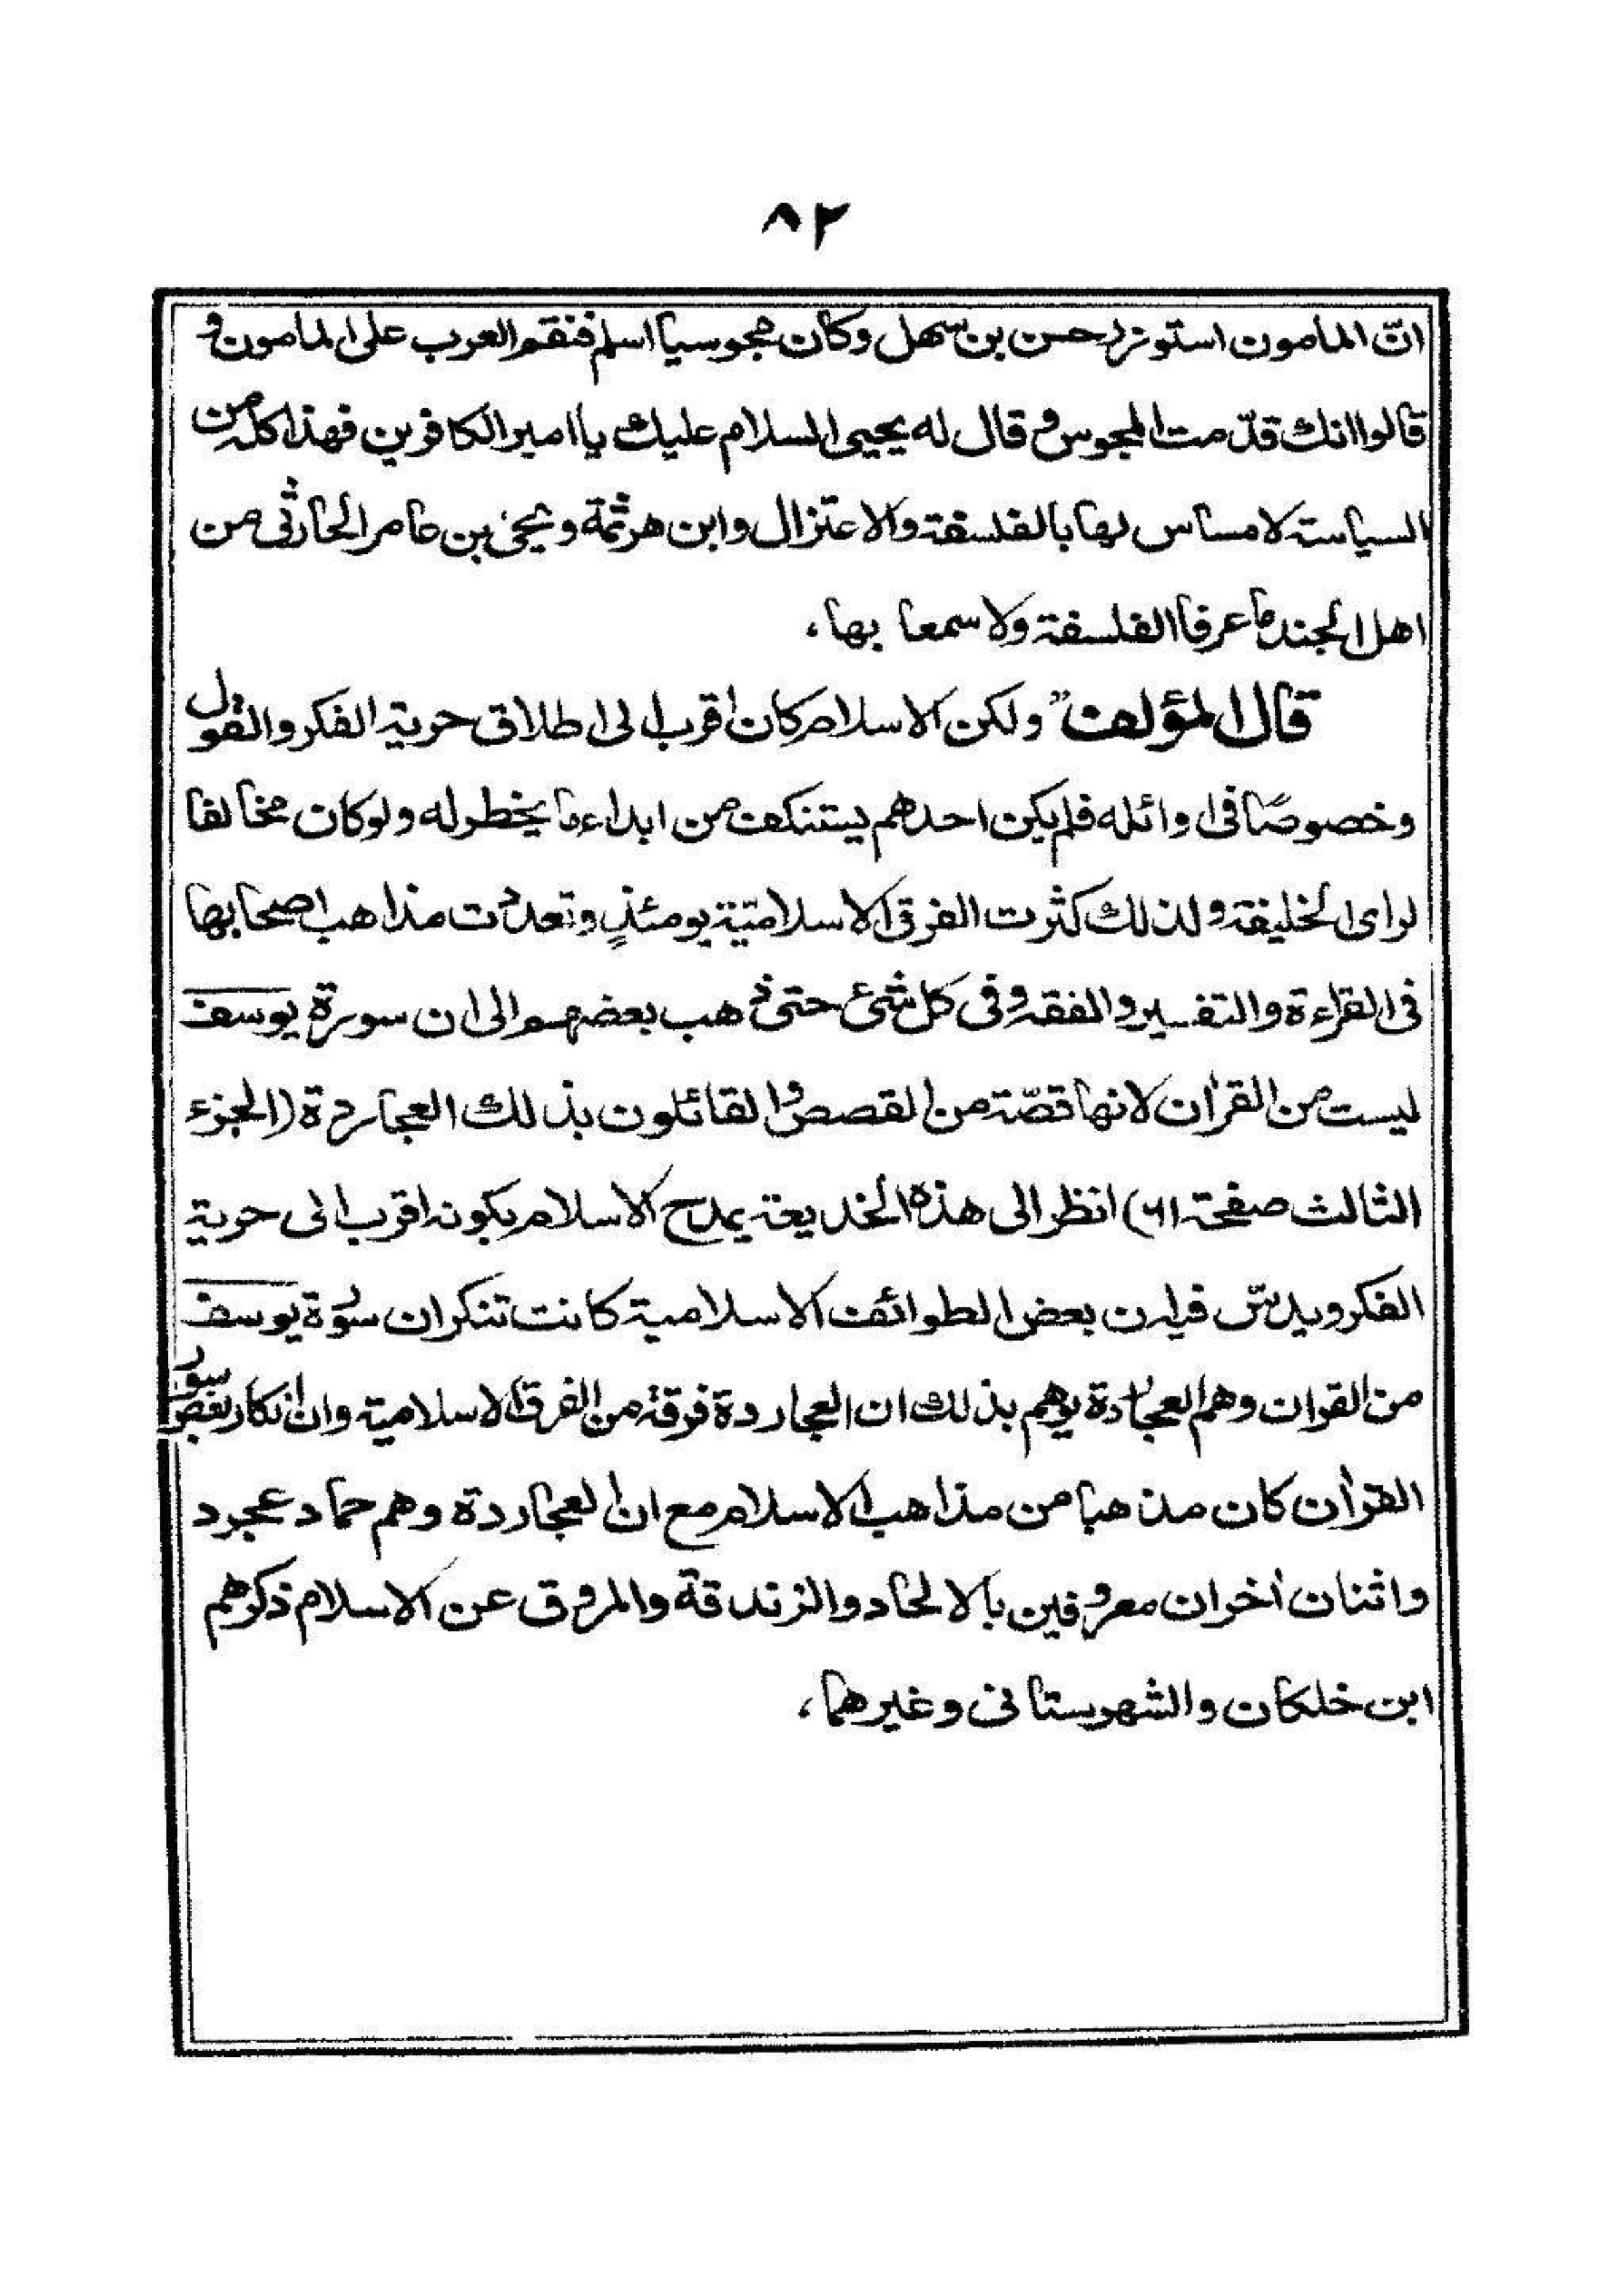 ٨٢
انّ المأمون استوزر حسن بن سهل وكان مجوسيا اسلم فنقم العرب على المامون و
قالوا انك قدّمت المجوس و قال له يحيى السلام عليك يا امير الكافرين فهذا كله من
السياسة لا مساس لها بالفلسفة والاعتزال وابن هرثمة ويحيى بن عامر الحارثى من
اهل الجند ما عرفا الفلسفة ولا سمعا بها،
قال المؤلف "ولكن الاسلام كان اقرب الى اطلاق حرية الفكر والقول
وخصوصًا فى اوائله فلم يكن احدهم يستنكف من ابداء ما يخطر له ولو كان مخالفا
لراى الخليفة ولذلك كثرت الفرق الاسلاميّة يومئذٍ وتعددت مذاهب اصحابها
فى القراءة والتفسير والفقه وفى كل شئ حتى ذهب بعضهم الى ان سورة يوسف
ليست من القرأن لانها قصّة من القصص والقائلون بذلك العجاردة (الجزء
الثالث صفحة ٦١) انظر الى هذه الخديعة يمدح الاسلام بكونه اقرب الى حرية
الفكر ويدسّ فيه ان بعض الطوائف الاسلامية كانت تنكر ان سورة يوسف
من القران وهم العجاردة يوهم بذلك ان العجاردة فرقة من الفرق الاسلامية وان انكار بعض سور
القرأن كان مذهبا من مذاهب الاسلام مع ان العجاردة وهم حماد عجرد
واثنان أخران معروفين بالالحاد والزندقة والمروق عن الاسلام ذكرهم
ابن خلكان والشهرستانى وغيرهما،